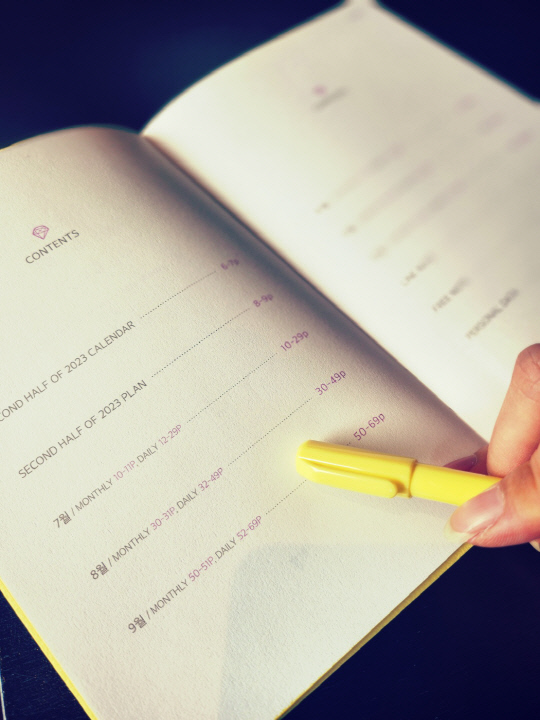 CONTENTS
OND HALF OF 2023 CALENDAR 6-7p
SECOND HALF OF 2023 PLAN 8-9p
7월 / MONTHLY 10-11P, DAILY 12-29P 10-29p
8월 / MONTHLY 30-31P, DAILY 32-49P 30-49p
9월 / MONTHLY 50-51P, DAILY 52-69P 50-69p
FREE NOTE
PERSONAL DATA